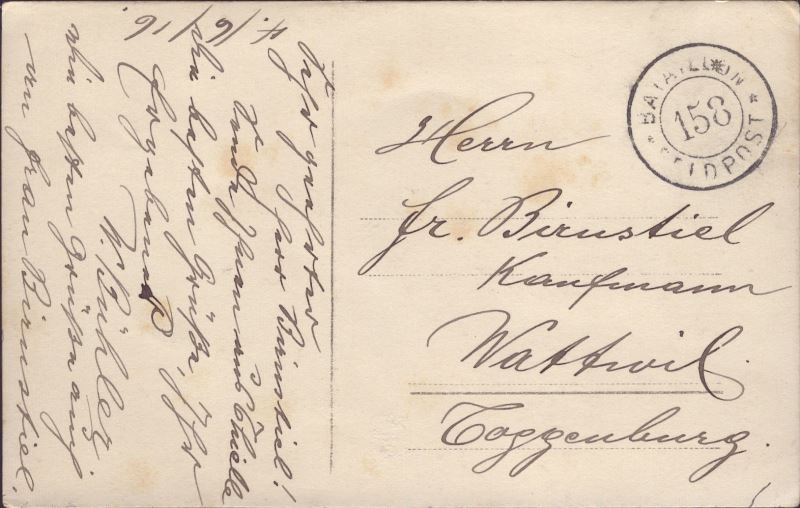 4./6./16.
Sehr geehrter
Herr Birnstiel!
Sende Ihnen aus Thielle
die besten Grüsse, Ihr
Ergebener
W. Bühler
die besten Grüsse auch
an Frau Birnstiel.
BATAILLON
158
FELDPOST
Herrn
Fr. Birnstiel
Kaufmann
Wattwil
Toggenburg.